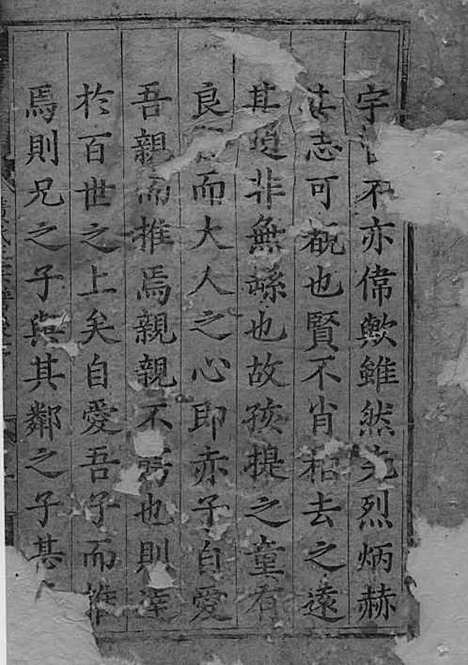 宇不亦偉歟雖然先烈炳赫
其志可槪也賢不肖相去之遠
其道非無繇也故孩提之童有
良而大人之心即赤子自愛
吾親而推焉親親不也則
於百世之上矣自愛吾子而推
焉則兄之子與其鄰之子甚